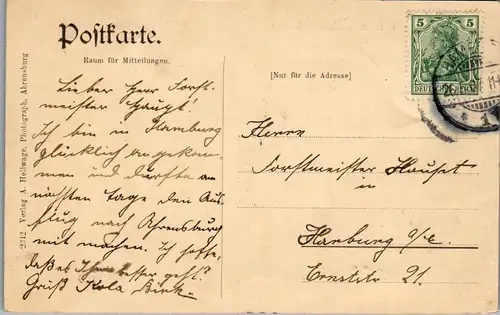 Postkarte.
Raum für Mitteilungen.
[Nur für die Adresse]
5 5
DEUTSCHES REICH
Lieber Herr Forst-
meister Haupt!
Ich bin in Hamburg
glücklich angekom
men und durfte am
nächsten tage den Aus
flug nach Ahrensburg
mit machen. Ich hoffe,
daß es Ihnen besser geht?
Gruß
2312 Verlag A. Hellwage, Photograph, Ahrensburg
Herrn
Forstmeister
in
Harburg a/e.
Ernststr 21.